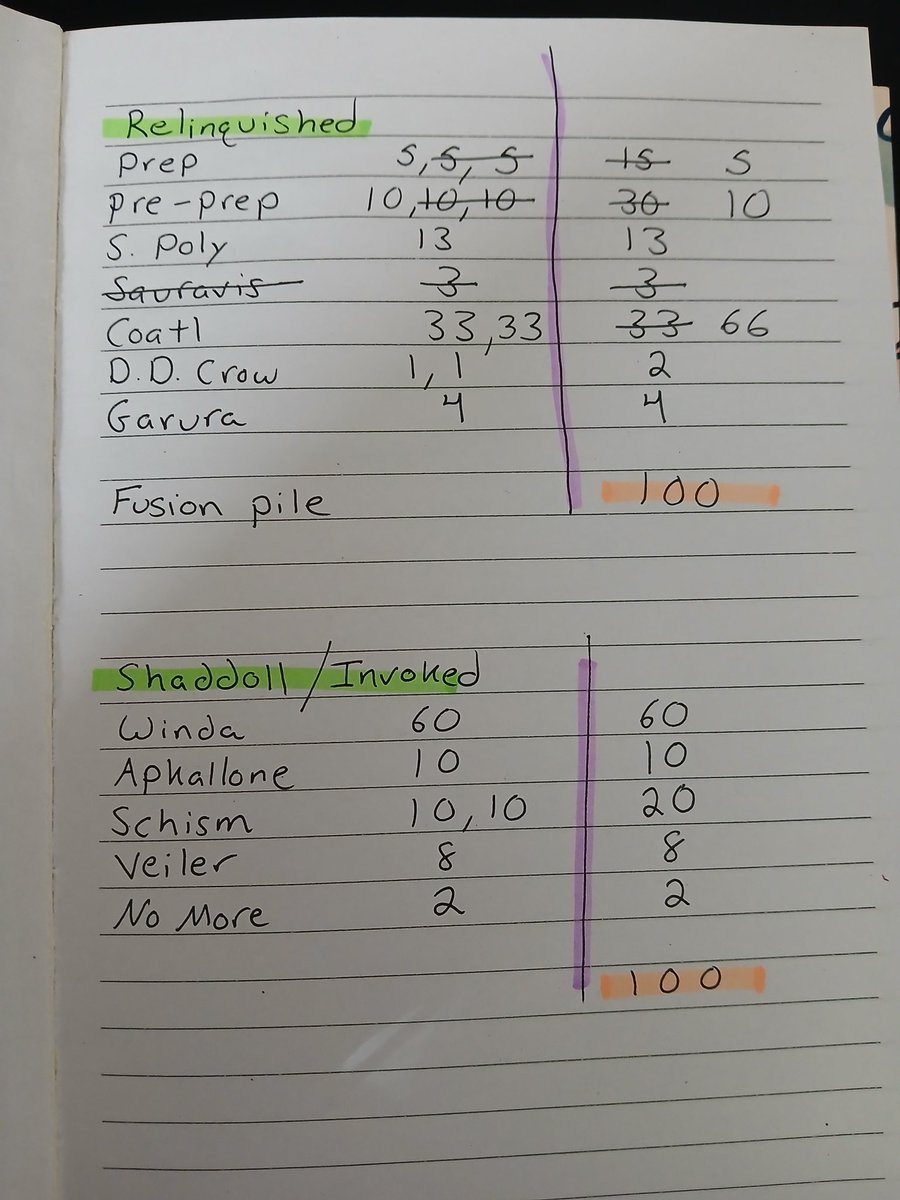 Relinquished
Prep 5, 5, 5 15 5
Pre-prep 10, 10, 10 30 10
S. Poly 13 13
Sauravis 3 3
Coatl 33, 33 33 66
D.D. Crow 1, 1 2
Garura 4 4
Fusion pile 100
Shaddoll / Invoked
Winda 60 60
Apkallone 10 10
Schism 10, 10 20
Veiler 8 8
No More 2 2
100